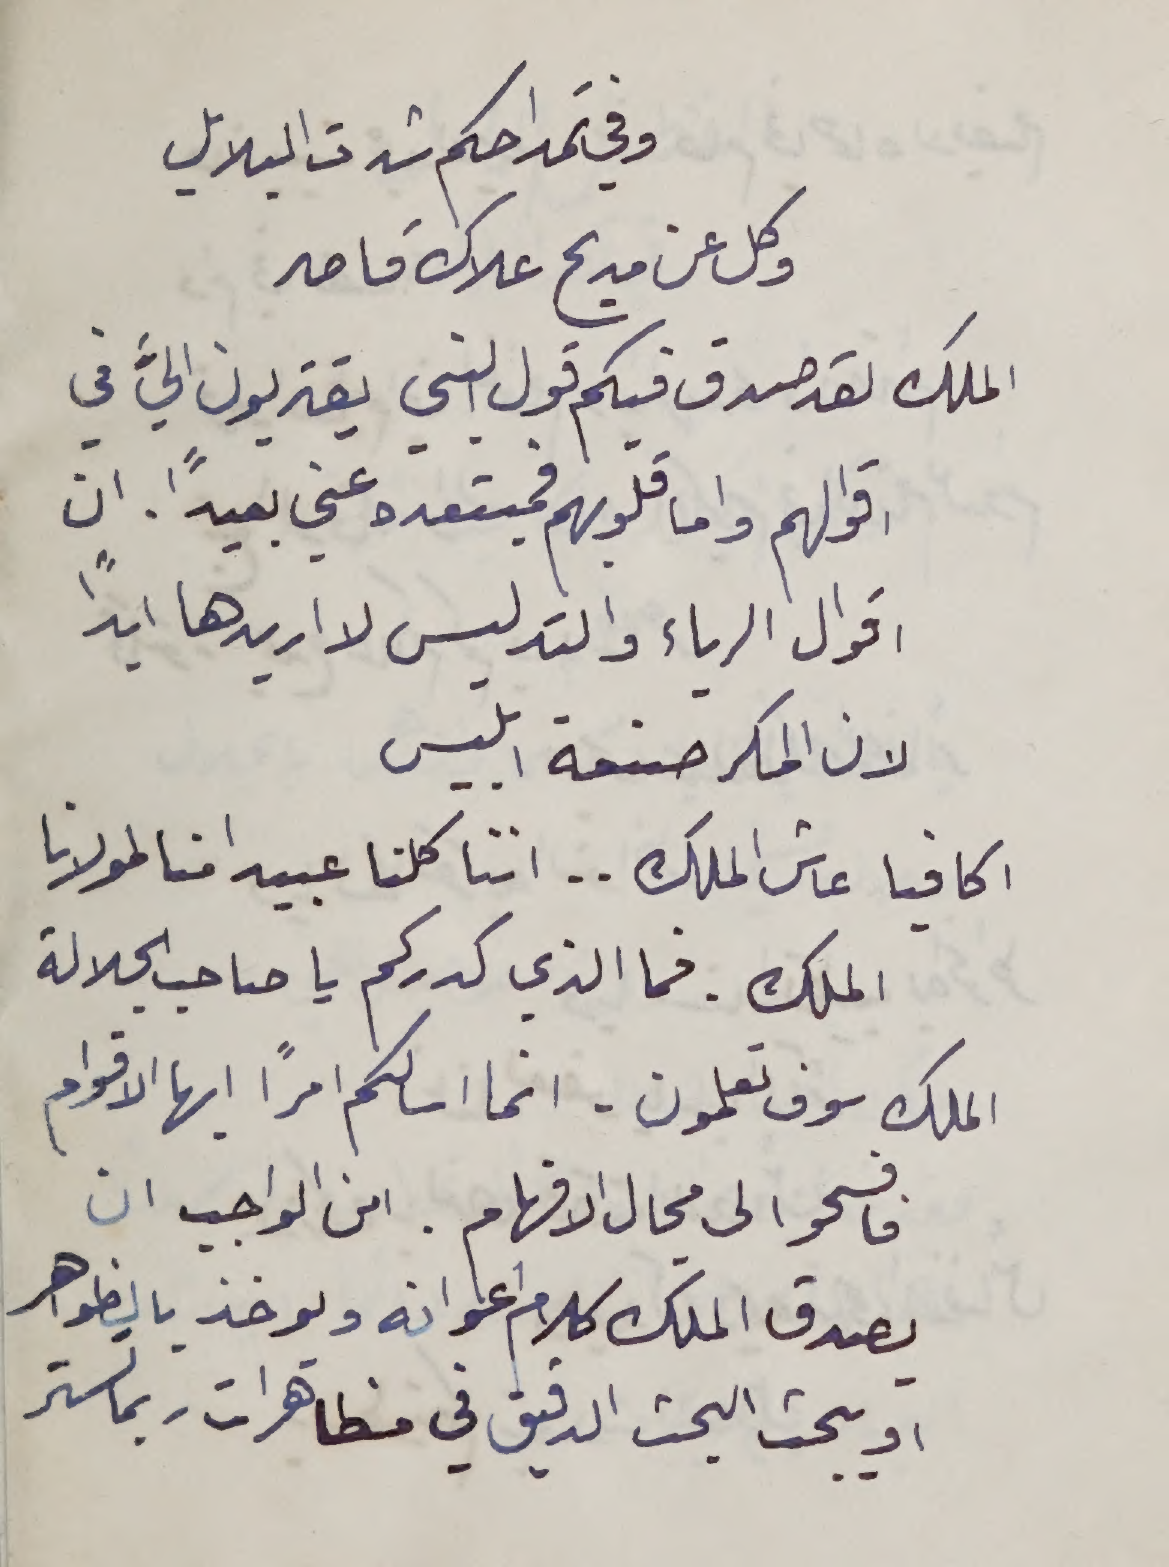 وفي تمداحكم شدت البلابل
وكل عن مديح علاك قاصر
الملك لقد صدق فيكم قول النبي يقتربون اليَّ في
اقوالهم واما قلوبهم فمبتعده عني بعيدًا. ان
اقوال الرياء والتدليس لا اريدها ابدًا
لان المكر صنعة ابليس
اكافيا عاش الملك .. اننا كلنا عبيد امنا لمولانا
الملك. فما الذي كدركم يا صاحب الجلالة
الملك سوف تعلمون - انما اسالكم امرًا ايها الاقوام
فافسحوا لي مجال الافهام. امن الواجب ان
يصدق الملك كلام اعوانه ويوخذ بالظواهر
او يبحث البحث الدقيق في مظاهرات ربما تستر